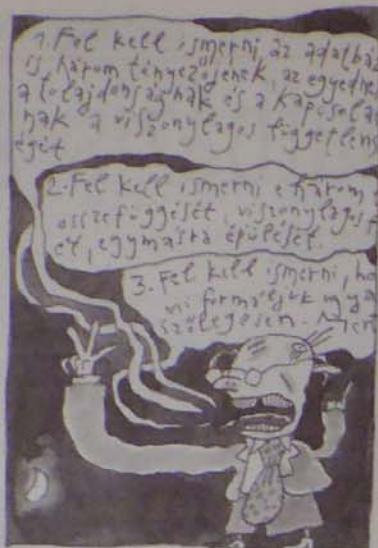 1. Fel kell ismerni az adatbáz
is három tényezőjének, az egyednek
a tulajdonságnak és a kapcsolat
nak a viszonylagos függetlens
égét
2. Fel kell ismerni e három
összefüggését, viszonylagos
ét, egymásra épülését.
3. Fel kell ismerni, ho
mi formáljuk
szülegesen. Mert